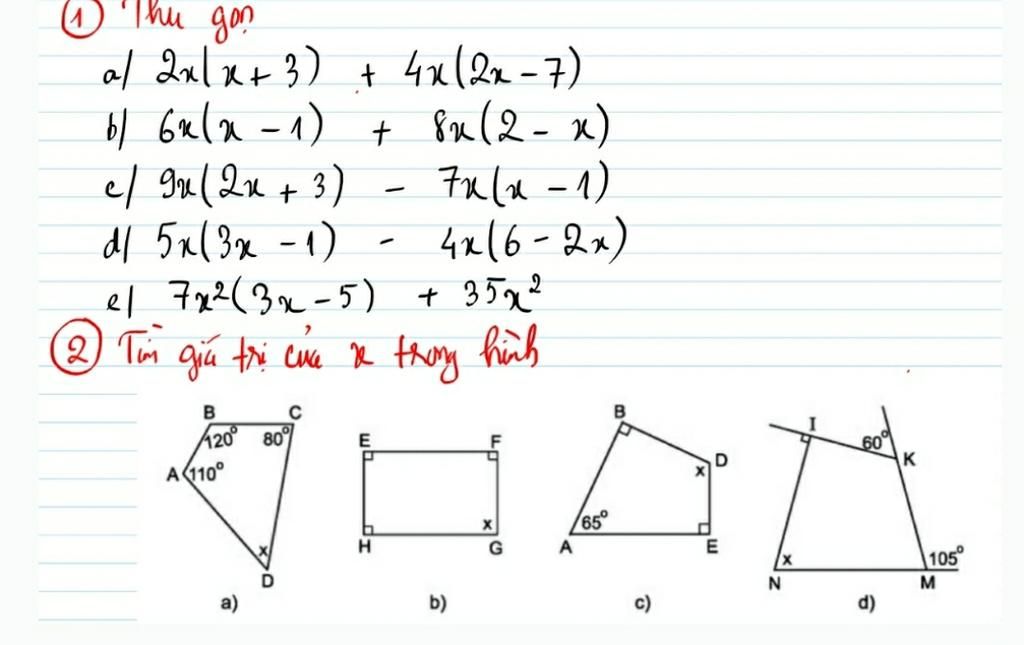 ① Thu gọn
a/ 2x(x + 3) + 4x(2x - 7)
b/ 6x(x - 1) + 8x(2 - x)
c/ 9x(2x + 3) - 7x(x - 1)
d/ 5x(3x - 1) - 4x(6 - 2x)
e/ 7x²(3x - 5) + 35x²
② Tìm giá trị của x trong hình
B C
120° 80°
A 110°
x
D
a)
E F
x
H G
b)
B
D
x
65°
A E
c)
I
60°
K
x 105°
N M
d)